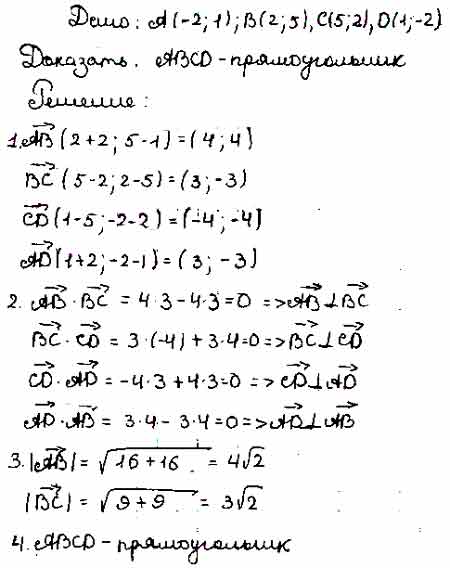 Дано: A(-2;1); B(2;5), C(5;2), D(1;-2)
Доказать. ABCD - прямоугольник
Решение:
1. AB⃗ (2+2; 5-1) = (4; 4)
BC⃗ (5-2; 2-5) = (3; -3)
CD⃗ (1-5; -2-2) = (-4; -4)
AD⃗ (1+2; -2-1) = (3; -3)
2. AB⃗ · BC⃗ = 4·3 - 4·3 = 0 => AB⃗ ⊥ BC⃗
BC⃗ · CD⃗ = 3·(-4) + 3·4 = 0 => BC⃗ ⊥ CD⃗
CD⃗ · AD⃗ = -4·3 + 4·3 = 0 => CD⃗ ⊥ AD⃗
AD⃗ · AB⃗ = 3·4 - 3·4 = 0 => AD⃗ ⊥ AB⃗
3. |AB⃗| = √(16+16) = 4√2
|BC⃗| = √(9+9) = 3√2
4. ABCD - прямоугольник